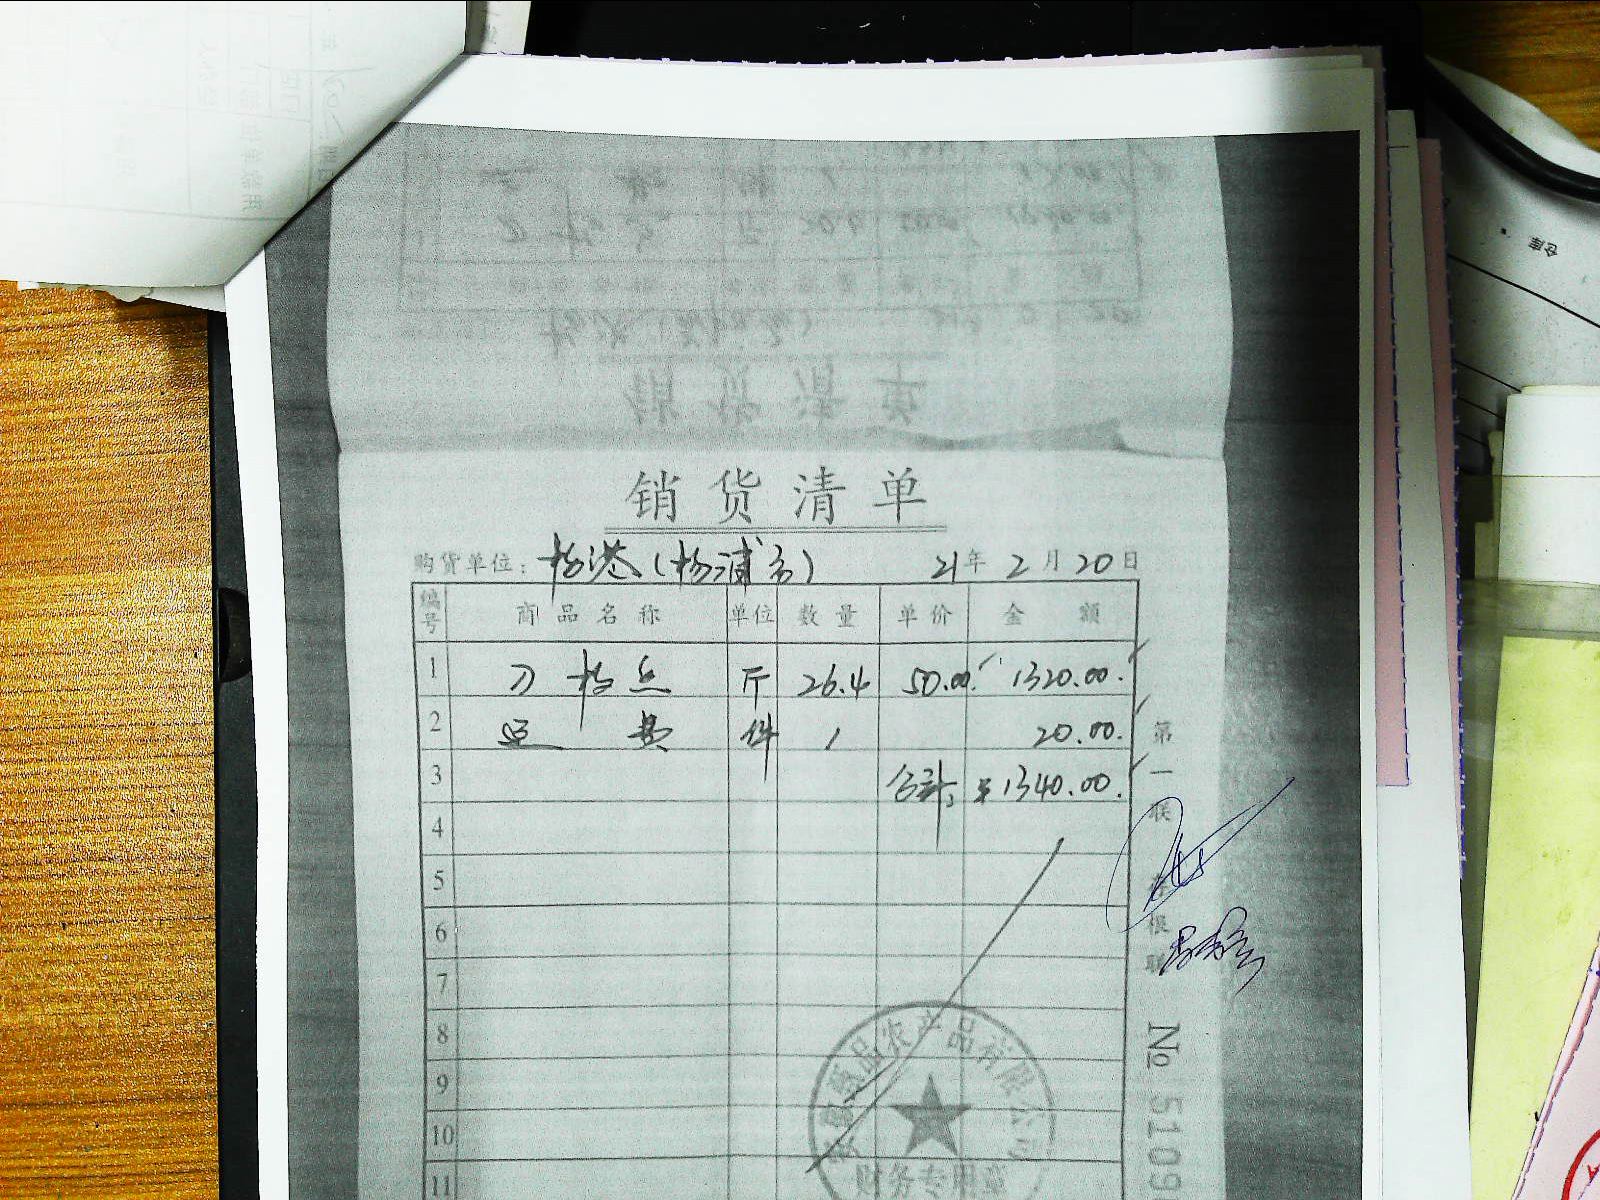 销货清单
购货单位: 杨港(杨浦店) 21年2月20日
编号 商品名称 单位 数量 单价 金额
1 刀 斤 26.4 50.00 1320.00.
2 运费 件 1 20.00.
3 合计: ¥1340.00.
4
5
6
7
8
9
10
11
第一联 存根联
№ 5109
品农产品有限公司
财务专用章
仓库